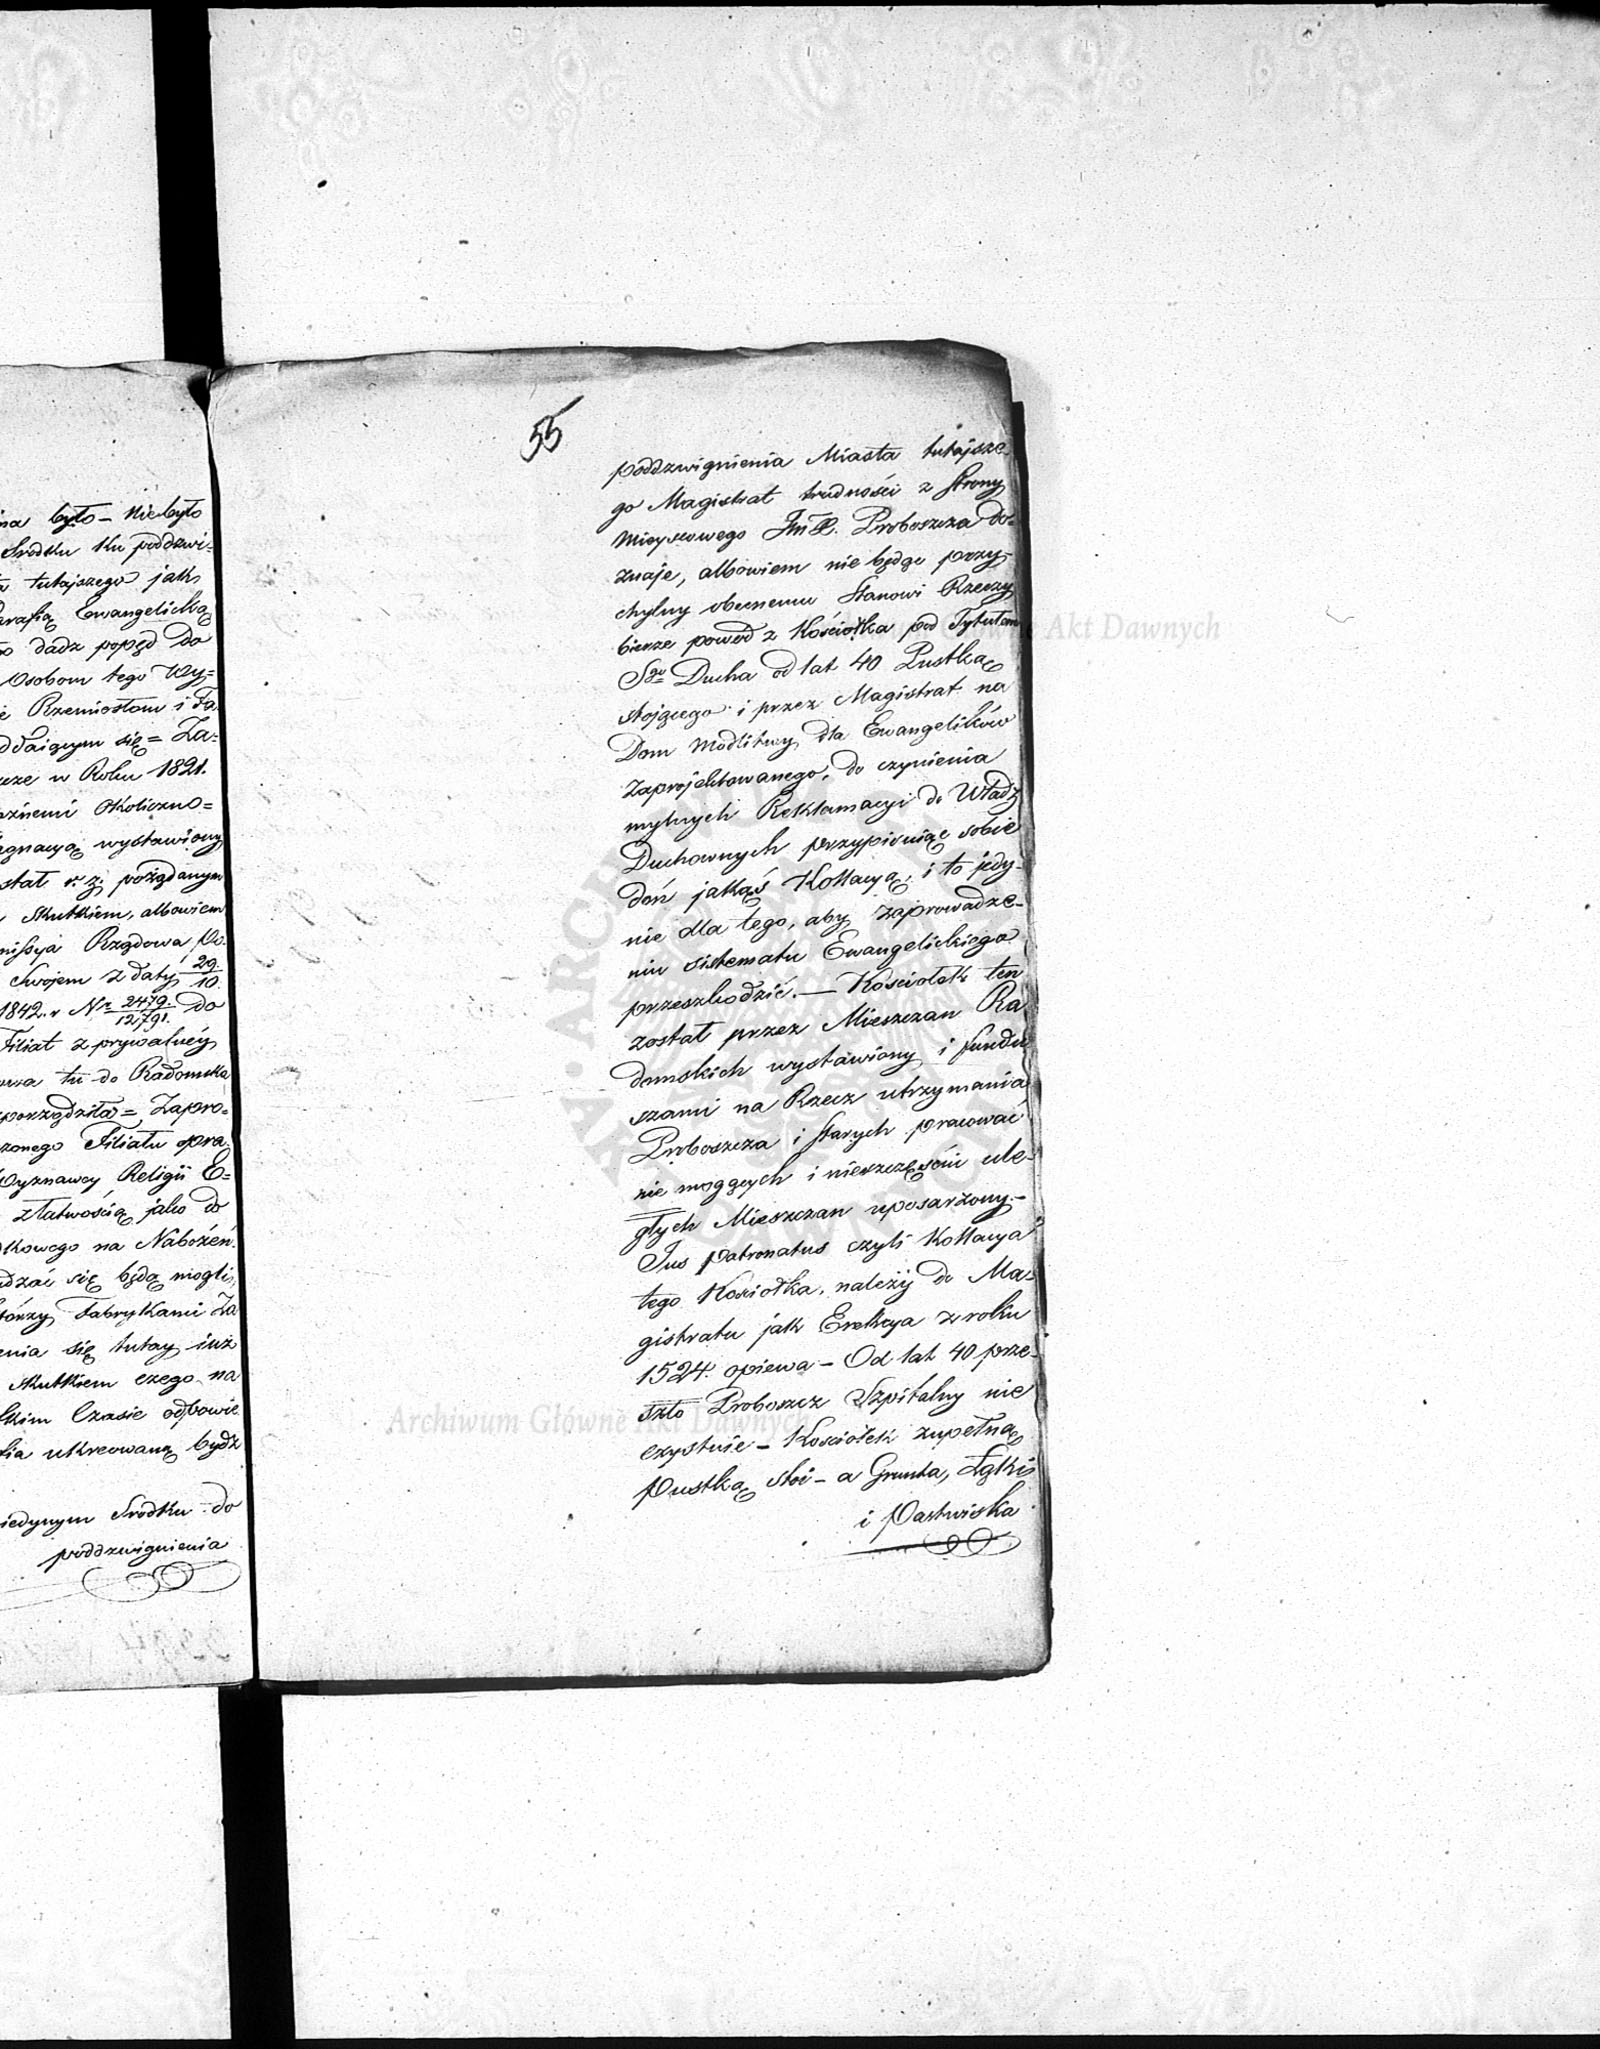 na było – Niebyło
Środku ku poddzwi=
tutajszego jak
Parafią Ewangelicką
dadz popęd do
Osobom tego Wy=
Rzemiosłom i Fa
ddaiącym się = Za=
w Roku 1821.
Okoliczno=
wystawiony
stał r. z. pożądanym
skutkiem, albowiem
Rządowa, Po.
Swojem z daty 29/10.
1842. r Nr 2479./12791. do
Filiał z prywatnéy
tu do Radomska
porządziła = Zapro=
zonego Filiału opra
Wyznawcy Religii E=
złatwością jako do
na Nabożeń.
dzać się będą mogli,
tórzy Fabrykami Za
enia się tutay iuż
skutkiem czego na
Czasie odpowie
ukreowaną bydź
iedynym Środku do
poddzwignienia
55
poddzwignienia Miasta tutajsze=
go Magistrat trudności z strony
mieyscowego JmX. Proboszcza do=
znaje, albowiem nie będąc przy=
chylny obecnemu Stanowi Rzeczy
bierze powód z Kościołka pod Tytułem
Sgo Ducha od lat 40 Pustką
stojącego i przez Magistrat na
Dom Modlitwy dla Ewangelików
zaprojektowanego, do czynienia
mylnych Reklamacyi do Władz
Duchownych przypisuiąc sobie
doń jakąś Kollacyą, i to jedy=
nie dla tego, aby zaprowadze=
niu sistematu Ewangelickiego
przeszkodzić. — Kościołek ten
został przez Mieszczan Ra
domskich wystawiony i fundu
szami na Rzecz utrzymania
Proboszcza i starych pracować
nie mogących i nieszczęściu ule=
głych Mieszczan uposarzony. –
Jus patronatus czyli Kollacya
tego Kościołka, należy do Ma=
gistratu jak Erekcya z roku
1524. opiewa – Od lat 40 prze=
szło Proboszcz Szpitalny nie
exystuie – Kościołek zupełną
Pustką stoi – a Grunta, Łąki
i Pastwiska
Archiwum Główne Akt Dawnych
Archiwum Główne Akt Dawnych